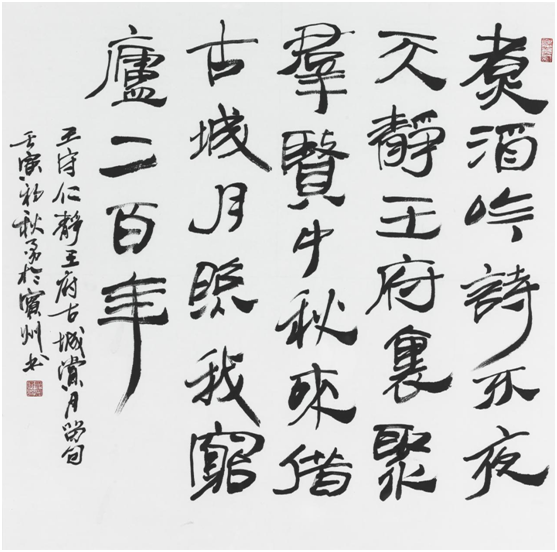 煮酒吟詩不夜
天靜王府裏聚
羣賢中秋來借
古城月照我窮
廬二百年
王守仁靜王府古城賞月句
壬寅初秋於賓州書